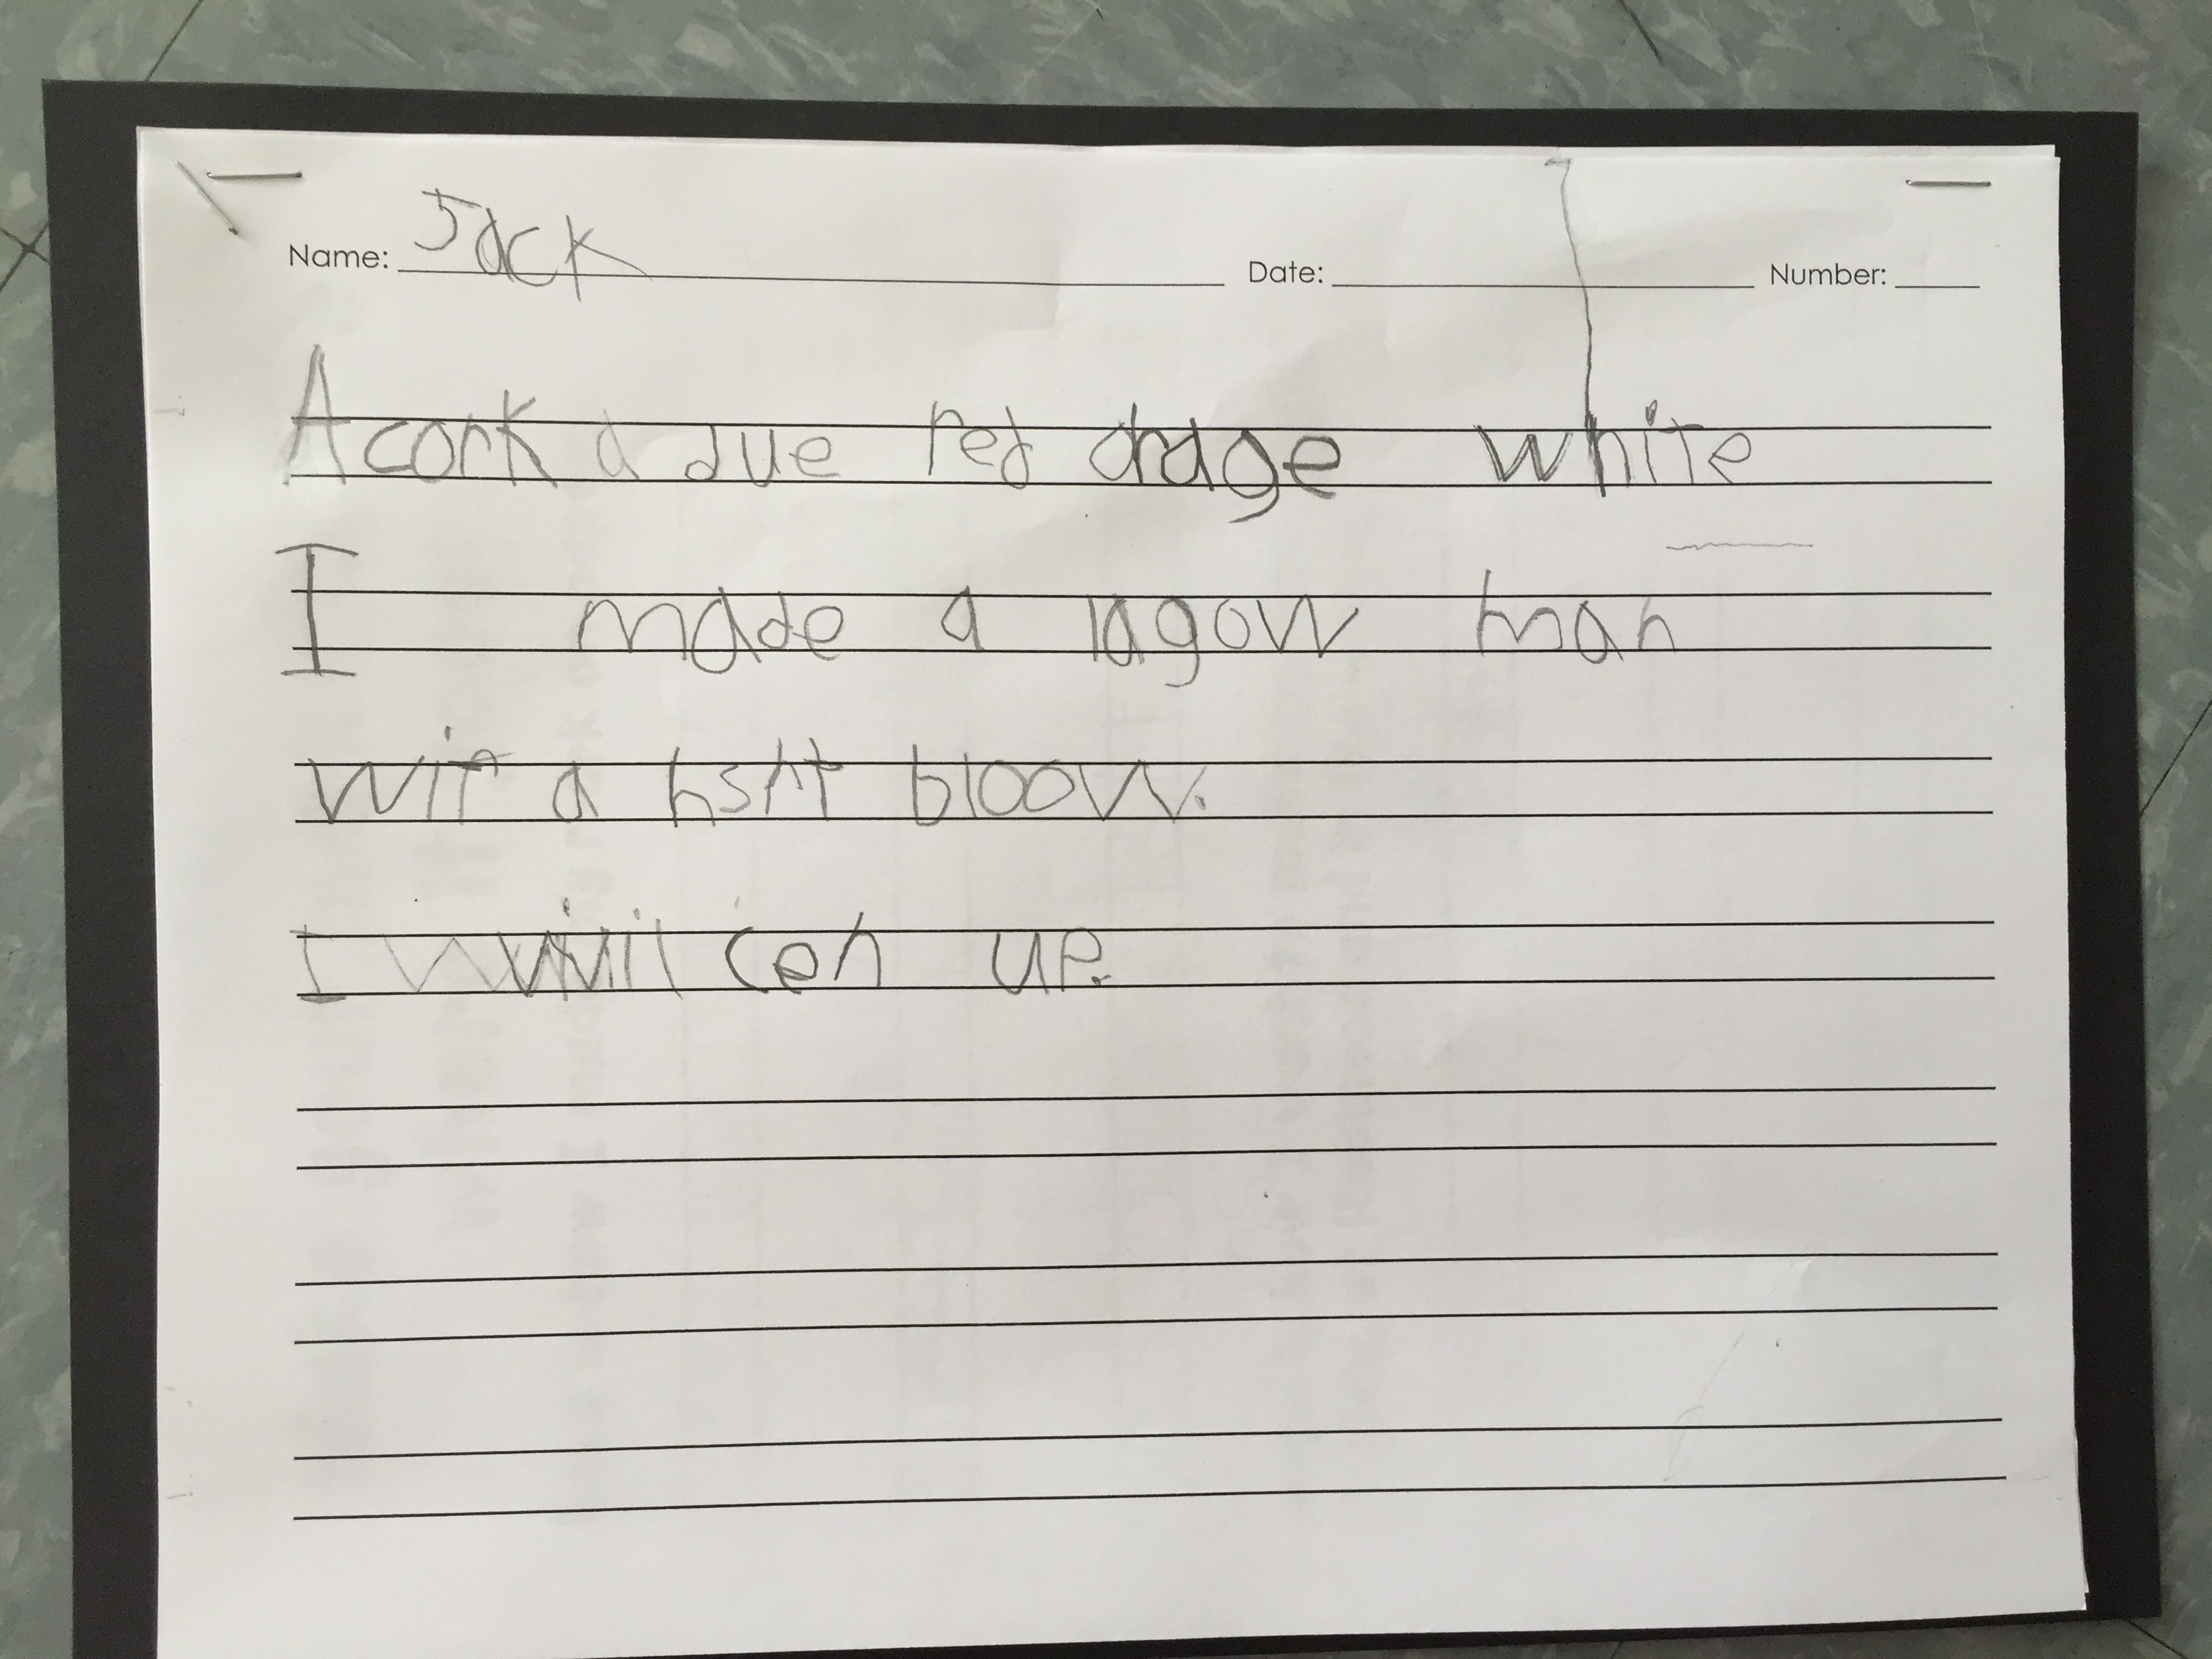 Name: Jack Date: Number:
A conk a due red drage white
I made a lagow man
wit a hsht bloow.
I will cen up.